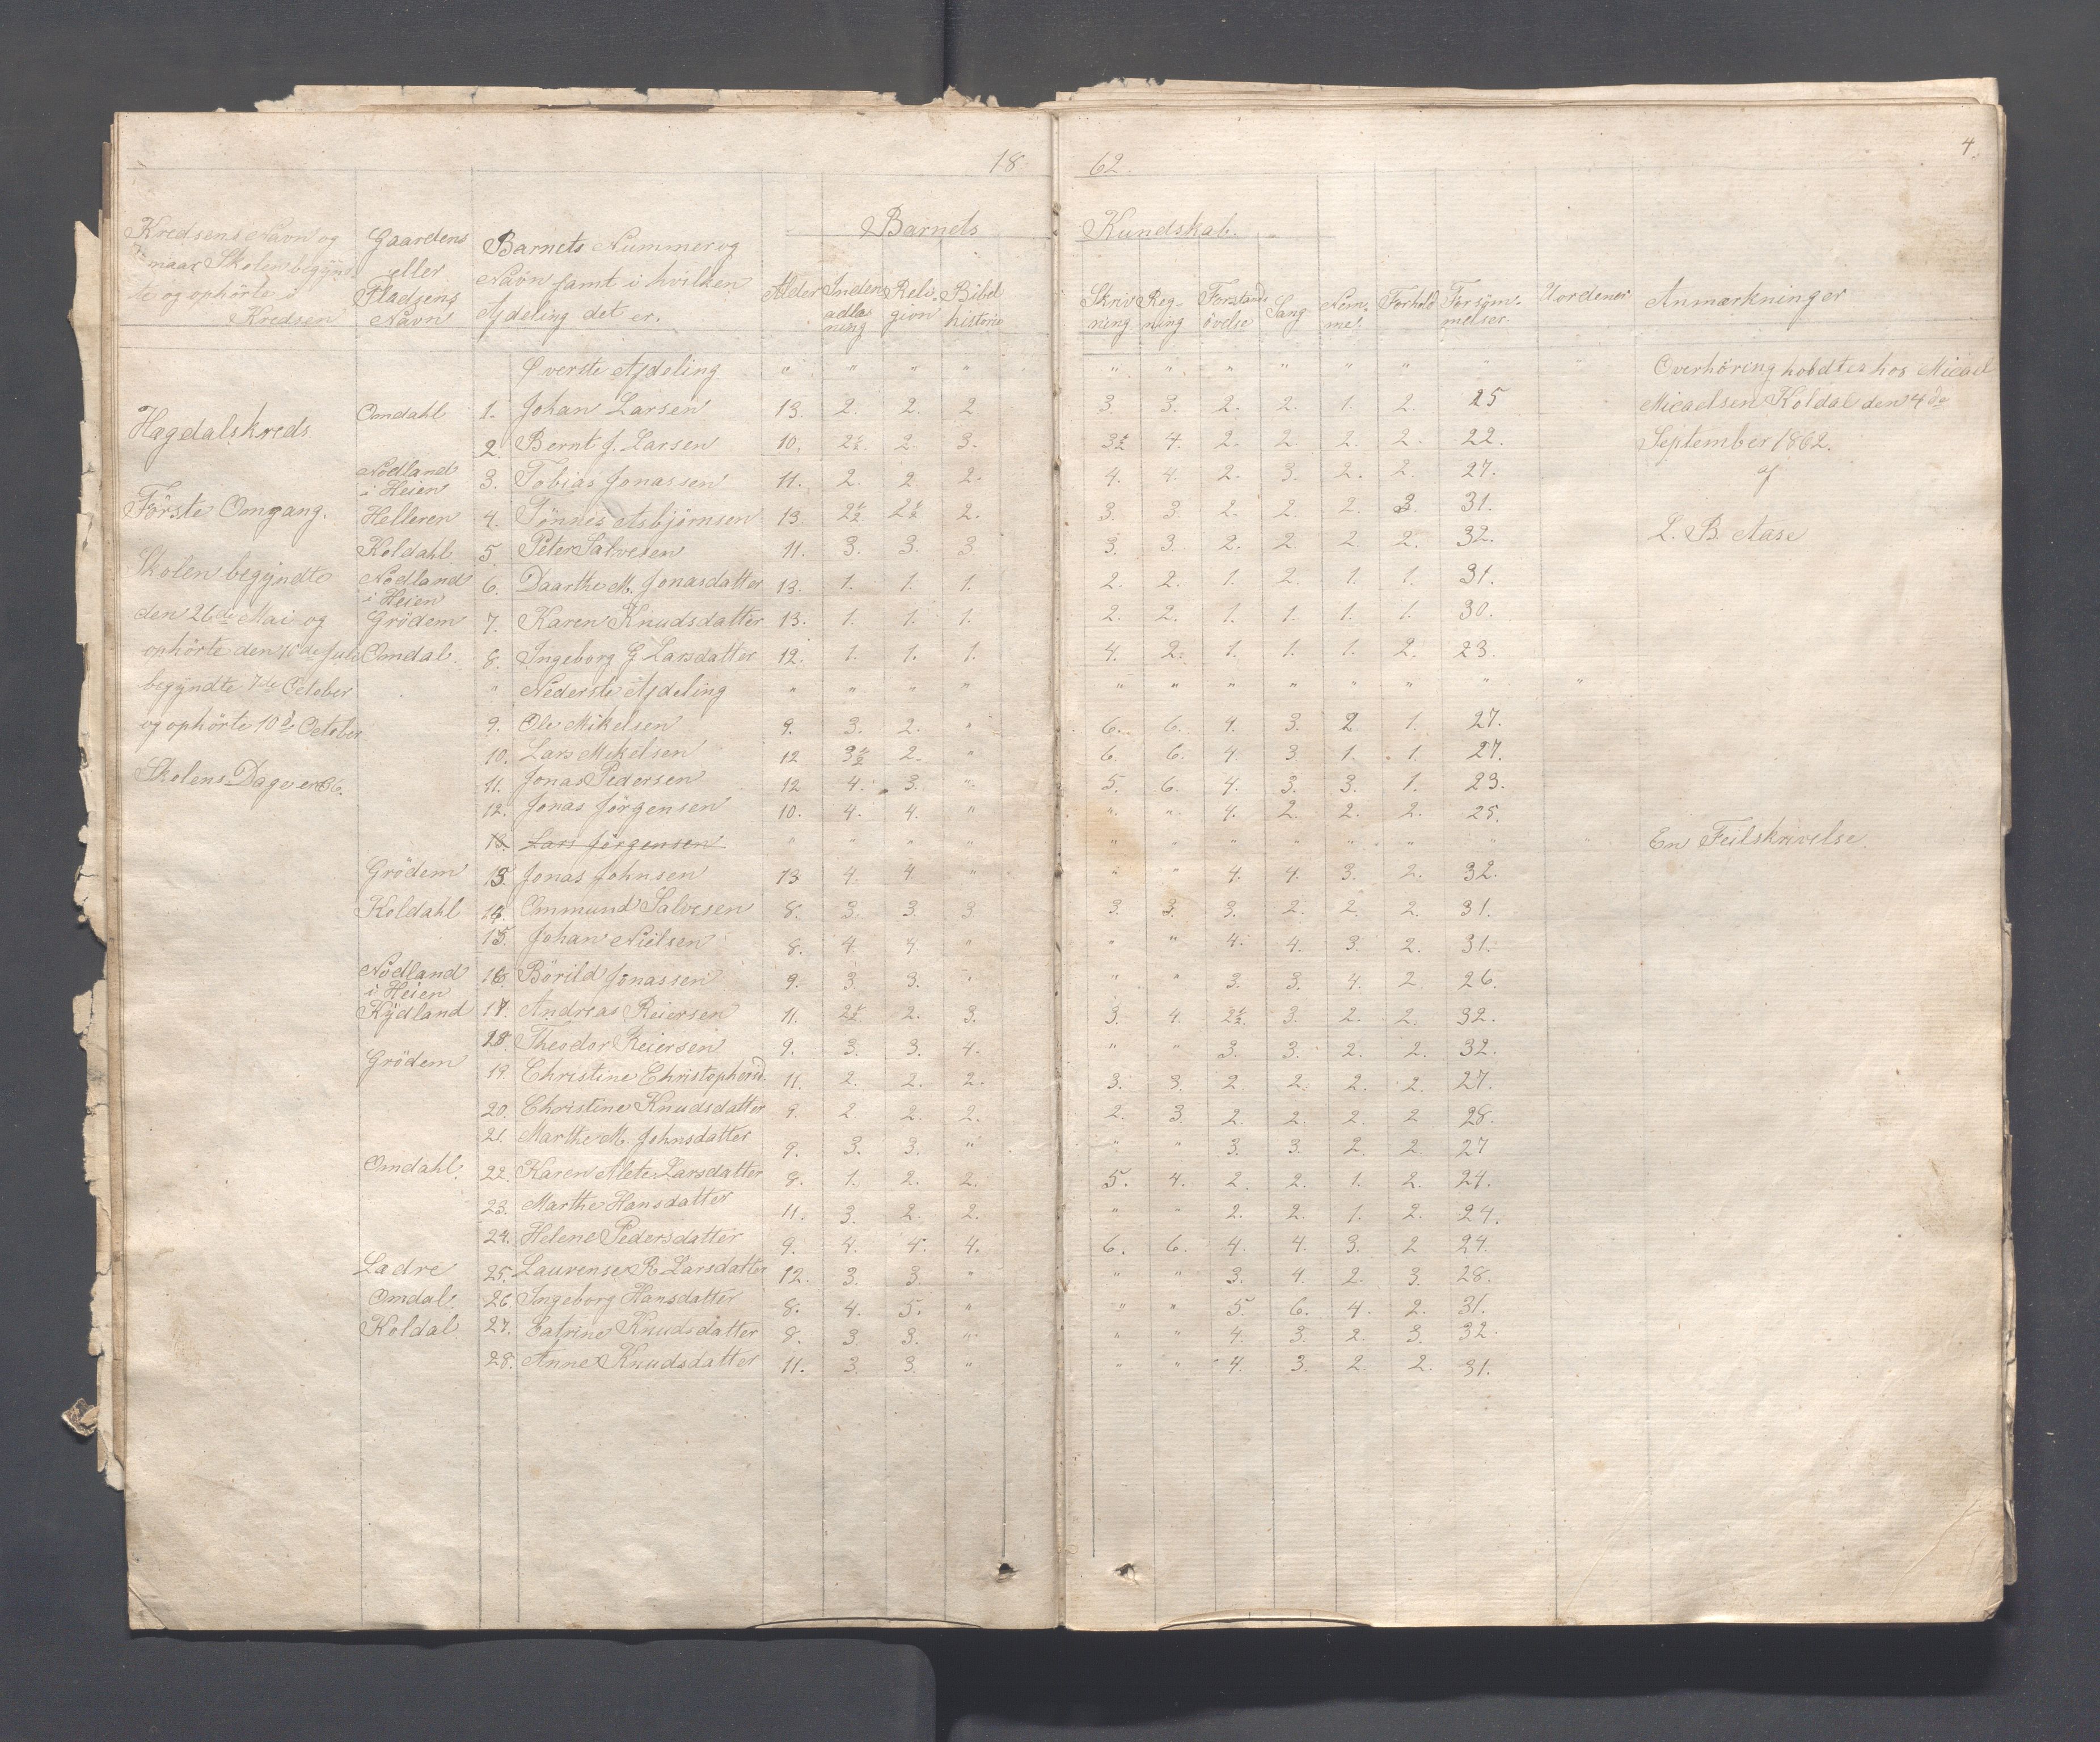 18 62. 4.
Kredsens Navn og naar Skolen begyndte og ophörte i Kredsen
Gaardens eller Pladsens Navn
Barnets Nummer og Navn samt i hvilken Afdeling det er.
Barnets Kundskab.
Alder Indenadlæsning Religion Bibelhistorie Skrivning Regning Forstandsövelse Sang Nemme. Forhold Forsömmelser. Uordener Anmærkninger
Hagdalskreds
Förste Omgang.
Skolen begyndte
den 26de Mai og
ophörte den 16de Juli
begyndte 7de October
og ophörte 10de October
Skolens Dage er 36.
Øverste Afdeling " " " " " " " " " " " "
Omdahl 1. Johan Larsen 13. 2. 2. 2 3. 3. 2. 2. 1. 2. 25
2. Bernt J. Larsen 10. 2½. 2. 3. 3½ 4. 2. 2. 2. 2. 22.
Nödland i Heien 3. Tobias Jonassen 11. 2. 2 2. 4. 4. 2. 3. 2. 2. 27.
Helleren 4. Tönnes Asbjörnsen 13. 2½ 2½ 2. 3. 3. 2. 2. 2. 3. 31.
Koldahl 5 Peter Salvesen 11. 3. 3. 3. 3. 3. 2. 2. 2. 2. 32.
Nödland i Heien 6. Daarthe M. Jonasdatter 13. 1. 1. 1. 2. 2. 1. 2. 1. 1. 31.
Grödem 7. Karen Knudsdatter 13. 1. 1. 1. 2. 2. 1. 1. 1. 1. 30.
Omdal. 8. Ingeborg G Larsdatter 12. 1. 1. 1. 4. 2. 1. 1. 1. 2. 23.
" Nederste Afdeling " " " " " " " " " " " "
9. Ole Mikelsen 9. 3. 2. " 6. 6. 4. 3. 2 1. 27.
10. Lars Mikelsen 12 3½ 2. " 6. 6. 4. 3. 1. 1. 27.
11. Jonas Pedersen 12 4. 3. " 5. 6. 4. 3. 3. 1. 23.
12. Jonas Jörgensen 10. 4. 4. " " " 4. 2. 2. 2. 25.
13. Lars Jörgensen " " " " " " " " " " " "
Grödem 13. Jonas Johnsen 13 4. 4 " " " 4. 4. 3. 2. 32.
Koldahl 14. Ommund Salvesen 8. 3. 3. 3 3. 3. 3. 2. 2. 2. 31.
15. Johan Nielsen 8. 4. 4. " " " 4. 4. 3. 2. 31.
Nödland i Heien 16 Börild Jonassen 9. 3. 3. " " " 3. 3. 4. 2. 26.
Kydland 17. Andreas Reiersen 11. 2½ 2. 3. 3. 4. 2½. 3. 2. 2. 32.
18. Theodor Reiersen 9. 3. 3. 4. " " 3. 3. 2. 2. 32.
Grödem 19. Christine Christophersd. 11. 2. 2. 2. 3. 3. 2. 2. 2. 2. 27.
20. Christine Knudsdatter 9. 2 2. 2. 2. 3. 2. 2. 2. 2 28.
21. Marthe M. Johnsdatter 9. 3. 3. " " " 3. 3. 2. 2. 27
Omdahl 22. Karen Mete Larsdatter 8. 1. 2. 2. 5. 4. 2. 2. 1. 2. 24.
23. Marthe Hansdatter 11. 3. 2. 2. " " 2. 2. 1. 2. 24.
24. Helene Pedersdatter 9. 4. 4. 4. 6. 6. 4. 4. 3. 2 24.
Ladre 25. Laurense R Larsdatter 12. 3. 3. " " " 3. 4. 2. 3. 28.
Omdal. 26. Ingeborg Hansdatter 8. 4. 5. " " " 5. 6. 4. 2. 31.
Koldal 27. Catrine Knudsdatter 8. 3. 3. " " " 4. 3. 2. 3. 32.
28. Anne Knudsdatter 11. 3. 3. " " " 4. 3. 2. 2. 31.
Overhöring holdtes hos Micael
Micaelsen Koldal den 4de
September 1862.
af
L. B. Aase
En Feilskrivelse.